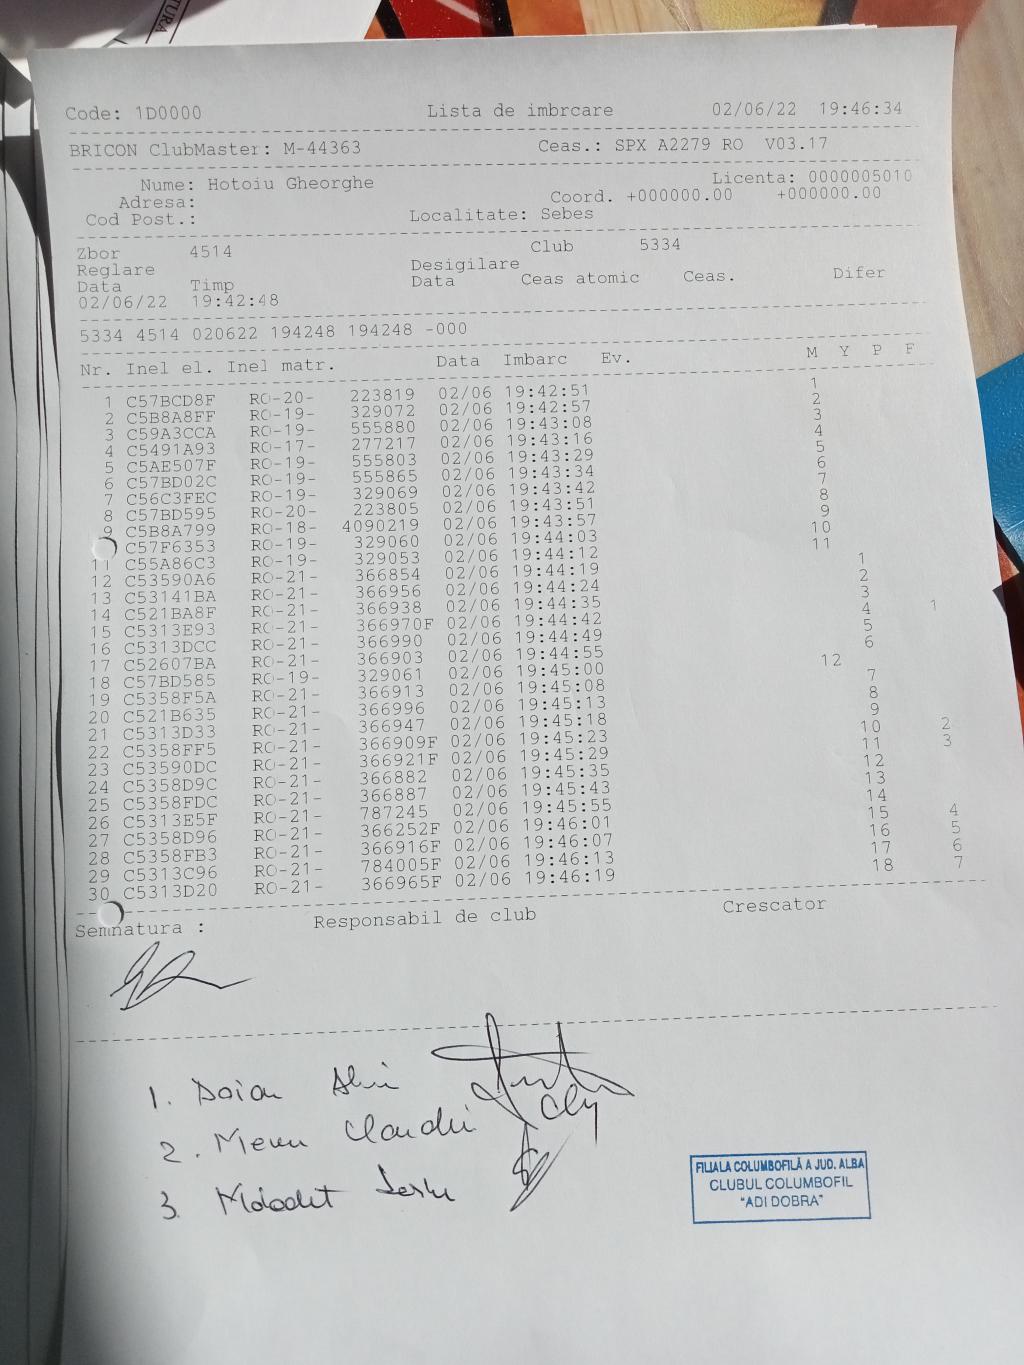 TURA
Code: 1D0000 Lista de imbrcare 02/06/22 19:46:34
BRICON ClubMaster: M-44363 Ceas.: SPX A2279 RO V03.17
Nume: Hotoiu Gheorghe Licenta: 0000005010
Adresa: Coord. +000000.00 +000000.00
Cod Post.: Localitate: Sebes
Zbor 4514 Club 5334
Reglare Desigilare
Data Timp Data Ceas atomic Ceas. Difer
02/06/22 19:42:48
5334 4514 020622 194248 194248 -000
Nr. Inel el. Inel matr. Data Imbarc Ev. M Y P F
1 C57BCD8F RO-20- 223819 02/06 19:42:51 1
2 C5B8A8FF RO-19- 329072 02/06 19:42:57 2
3 C59A3CCA RO-19- 555880 02/06 19:43:08 3
4 C5491A93 RO-17- 277217 02/06 19:43:16 4
5 C5AE507F RO-19- 555803 02/06 19:43:29 5
6 C57BD02C RO-19- 555865 02/06 19:43:34 6
7 C56C3FEC RO-19- 329069 02/06 19:43:42 7
8 C57BD595 RO-20- 223805 02/06 19:43:51 8
9 C5B8A799 RO-18- 4090219 02/06 19:43:57 9
C57F6353 RO-19- 329060 02/06 19:44:03 10
11 C55A86C3 RO-19- 329053 02/06 19:44:12 11
12 C53590A6 RO-21- 366854 02/06 19:44:19 1
13 C53141BA RO-21- 366956 02/06 19:44:24 2
14 C521BA8F RO-21- 366938 02/06 19:44:35 3
15 C5313E93 RO-21- 366970F 02/06 19:44:42 4 1
16 C5313DCC RO-21- 366990 02/06 19:44:49 5
17 C52607BA RO-21- 366903 02/06 19:44:55 6
18 C57BD585 RO-19- 329061 02/06 19:45:00 12
19 C5358F5A RO-21- 366913 02/06 19:45:08 7
20 C521B635 RO-21- 366996 02/06 19:45:13 8
21 C5313D33 RO-21- 366947 02/06 19:45:18 9
22 C5358FF5 RO-21- 366909F 02/06 19:45:23 10 2
23 C53590DC RO-21- 366921F 02/06 19:45:29 11 3
24 C5358D9C RO-21- 366882 02/06 19:45:35 12
25 C5358FDC RO-21- 366887 02/06 19:45:43 13
26 C5313E5F RO-21- 787245 02/06 19:45:55 14
27 C5358D96 RO-21- 366252F 02/06 19:46:01 15 4
28 C5358FB3 RO-21- 366916F 02/06 19:46:07 16 5
29 C5313C96 RO-21- 784005F 02/06 19:46:13 17 6
30 C5313D20 RO-21- 366965F 02/06 19:46:19 18 7
Semnatura : Responsabil de club Crescator
1. Doian
2. Claudiu
3.
FILIALA COLUMBOFILĂ A JUD. ALBA
CLUBUL COLUMBOFIL
"ADI DOBRA"